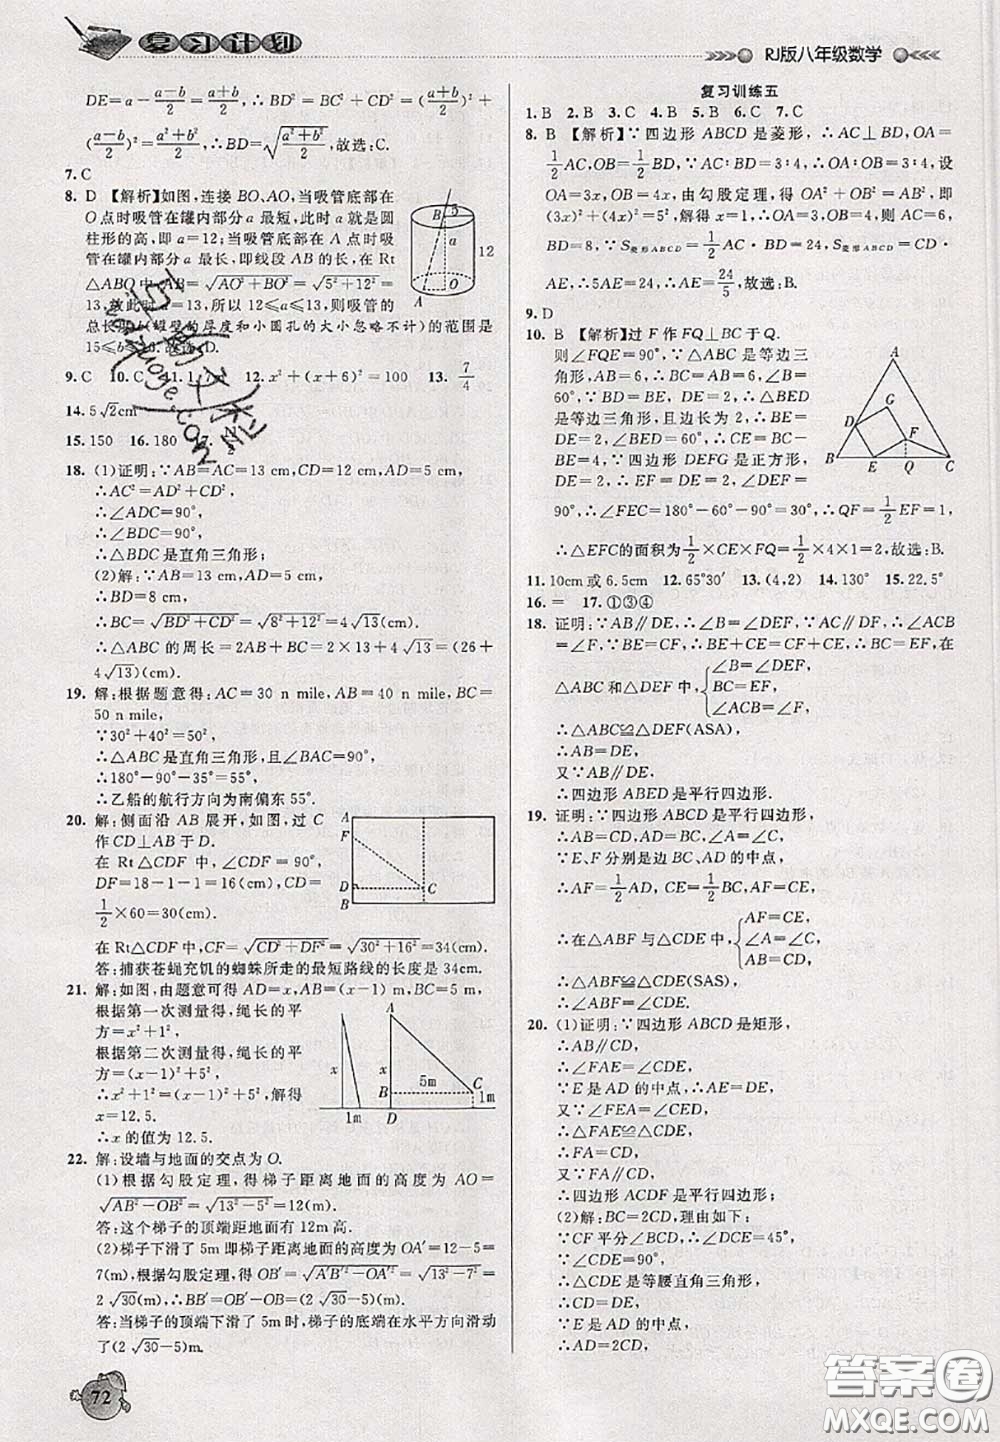 复习计划
RJ版八年级数学
DE=a-(a-b)/2=(a+b)/2,∴BD²=BC²+CD²=((a+b)/2)²+
((a-b)/2)²=(a²+b²)/2,∴BD=√((a²+b²)/2),故选:C.
7.C
8. D 【解析】如图,连接BO、AO,当吸管底部在
O点时吸管在罐内部分a最短,此时a就是圆
柱形的高,即a=12;当吸管底部在A点时吸
管在罐内部分a最长,即线段AB的长,在Rt
△ABO中,AB=√(AO²+BO²)=√(5²+12²)=
13,故此时a=13,所以12≤a≤13,则吸管的
总长度b(罐壁的厚度和小圆孔的大小忽略不计)的范围是
15≤b≤16.故选:D.
B 5 a 12 A O
9.C 10.C 11.1.7 12.x²+(x+6)²=100 13.7/4
14.5√2cm
15.150 16.180 17.
18. (1)证明:∵AB=AC=13 cm,CD=12 cm,AD=5 cm,
∴AC²=AD²+CD²,
∴∠ADC=90°,
∴∠BDC=90°,
∴△BDC是直角三角形;
(2)解:∵AB=13 cm,AD=5 cm,
∴BD=8 cm,
∴BC=√(BD²+CD²)=√(8²+12²)=4√13(cm),
∴△ABC的周长=2AB+BC=2×13+4√13=(26+
4√13)(cm).
19. 解:根据题意得:AC=30 n mile,AB=40 n mile,BC=
50 n mile,
∵30²+40²=50²,
∴△ABC是直角三角形,且∠BAC=90°,
∴180°-90°-35°=55°,
∴乙船的航行方向为南偏东55°.
20. 解:侧面沿AB展开,如图,过C
作CD⊥AB于D.
在Rt△CDF中,∠CDF=90°,
DF=18-1-1=16(cm),CD=
1/2×60=30(cm),
A F D B C
在Rt△CDF中,CF=√(CD²+DF²)=√(30²+16²)=34(cm).
答:捕获苍蝇充饥的蜘蛛所走的最短路线的长度是34cm.
21. 解:如图,由题意可得AD=x m,AB=(x-1)m,BC=5 m,
根据第一次测量得,绳长的平
方=x²+1²,
根据第二次测量得,绳长的平
方=(x-1)²+5²,
∴x²+1²=(x-1)²+5²,解得
x=12.5.
∴x的值为12.5.
x 1m A x B D 5m C 1m
22. 解:设墙与地面的交点为O.
(1)根据勾股定理,得梯子距离地面的高度为AO=
√(AB²-OB²)=√(13²-5²)=12(m)
答:这个梯子的顶端距地面有12m高.
(2)梯子下滑了5m即梯子距离地面的高度为OA′=12-5=
7(m),根据勾股定理,得OB′=√(A′B′²-OA′²)=√(13²-7²)=
2√30(m),∴BB′=OB′-OB=(2√30-5)m
答:当梯子的顶端下滑了5m时,梯子的底端在水平方向滑动
了(2√30-5)m.
72
复习训练五
1.B 2.B 3.C 4.B 5.B 6.C 7.C
8. B 【解析】∵四边形ABCD是菱形,∴AC⊥BD,OA=
1/2AC,OB=1/2BD;∵AC:BD=3:4,∴OA:OB=3:4,设
OA=3x,OB=4x,由勾股定理,得OA²+OB²=AB²,即
(3x)²+(4x)²=5²,解得x=1,∴OA=3,OB=4,∴AC=6,
BD=8,∵S菱形ABCD=1/2AC×BD=24,S菱形ABCD=CD×
AE,∴5AE=24,∴AE=24/5,故选:B.
9.D
10. B 【解析】过F作FQ⊥BC于Q.
则∠FQE=90°,∵△ABC是等边三
角形,AB=6,∴BC=AB=6,∠B=
60°,∵BD=BE,DE=2,∴△BED
是等边三角形,且边长为2,∴BE=
DE=2,∠BED=60°,∴CE=BC-
BE=4,∵四边形DEFG是正方形,
DE=2,∴EF=DE=2,∠DEF=
90°,∴∠FEC=180°-60°-90°=30°,∴QF=1/2EF=1,
∴△EFC的面积为1/2×CE×FQ=1/2×4×1=2,故选:B.
A G D F B E Q C
11.10cm或6.5cm 12.65°30′ 13.(4,2) 14.130° 15.22.5°
16.= 17.①③④
18. 证明:∵AB∥DE,∴∠B=∠DEF,∵AC∥DF,∴∠ACB
=∠F,∵BE=CF,∴BE+CE=CF+CE,∴BC=EF,在
△ABC和△DEF中,{∠B=∠DEF, BC=EF, ∠ACB=∠F,
∴△ABC≌△DEF(ASA),
∴AB=DE,
又∵AB∥DE,
∴四边形ABED是平行四边形.
19. 证明:∵四边形ABCD是平行四边形,
∴AB=CD,AD=BC,∠A=∠C,
∵E、F分别是边BC、AD的中点,
∴AF=1/2AD,CE=1/2BC,∴AF=CE,
∴在△ABF与△CDE中,{AF=CE, ∠A=∠C, AB=CD,
∴△ABF≌△CDE(SAS),
∴∠ABF=∠CDE.
20. (1)证明:∵四边形ABCD是矩形,
∴AB∥CD,
∴∠FAE=∠CDE,
∵E是AD的中点,∴AE=DE,
又∵∠FEA=∠CED,
∴△FAE≌△CDE,
∴CD=FA,
又∵FA∥CD,
∴四边形ACDF是平行四边形;
(2)解:BC=2CD,理由如下:
∵CF平分∠BCD,∴∠DCE=45°,
∵∠CDE=90°,
∴△CDE是等腰直角三角形,
∴CD=DE,
∵E是AD的中点,
∴AD=2CD,
∵AD=BC,∴BC=2CD.
答案圈
MXQE.COM